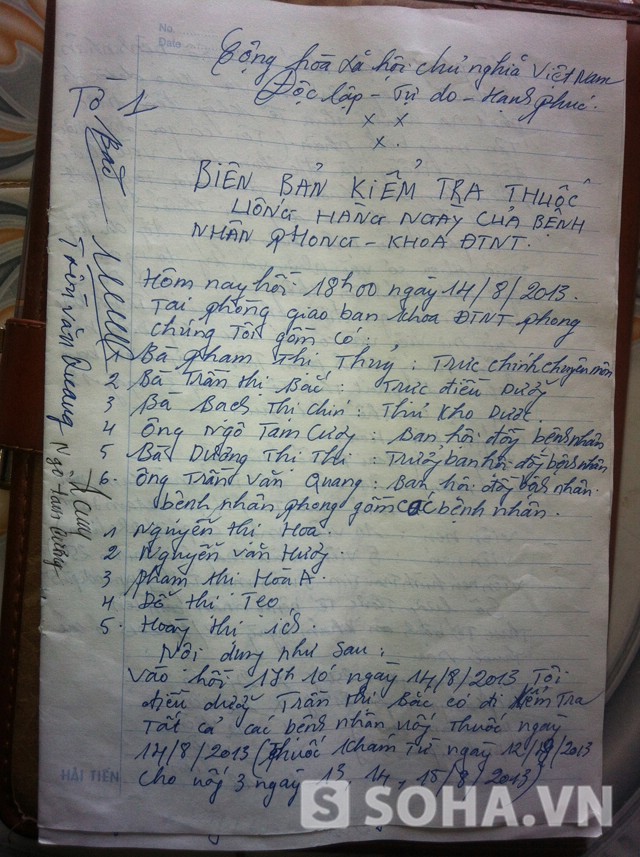 No
Date
Cộng hòa xã hội chủ nghĩa Việt Nam
Độc lập - Tự do - Hạnh phúc.
x x
x.
Tờ 1
BIÊN BẢN KIỂM TRA THUỐC
UỐNG HÀNG NGÀY CỦA BỆNH
NHÂN PHONG - KHOA ĐTNT.
Hôm nay hồi 18h00 ngày 14/8/2013.
Tại phòng giao ban khoa ĐTNT phong
chúng tôi gồm có:
1 Bà Phạm Thị Thuỷ: Trực chính chuyên môn
2 Bà Trần Thị Bắc: Trực điều dưỡng
3 Bà Bạch Thị Chín: Thủ kho dược
4 Ông Ngô Tam Cường: Ban hội đồng bệnh nhân
5 Bà Dương Thị Thi: Trưởng ban hội đồng bệnh nhân
6. Ông Trần Văn Quang: Ban hội đồng bệnh nhân.
bệnh nhân phong gồm các bệnh nhân.
1 Nguyễn Thị Hoa.
2 Nguyễn Văn Hường.
3 Phạm Thị Hoa A.
4 Đỗ Thị Teo
5. Hoàng Thị Ích.
Nội dung như sau:
Vào hồi 17h10 ngày 14/8/2013 Tôi
điều dưỡng Trần Thị Bắc có đi kiểm tra
tất cả các bệnh nhân uống thuốc ngày
14/8/2013 (Thuốc khám từ ngày 12/8/2013
cho uống 3 ngày 13, 14, 15/8/2013)
Bắc
Trần Văn Quang
Ngô Tam Cường
HẢI TIẾN
S SOHA.VN